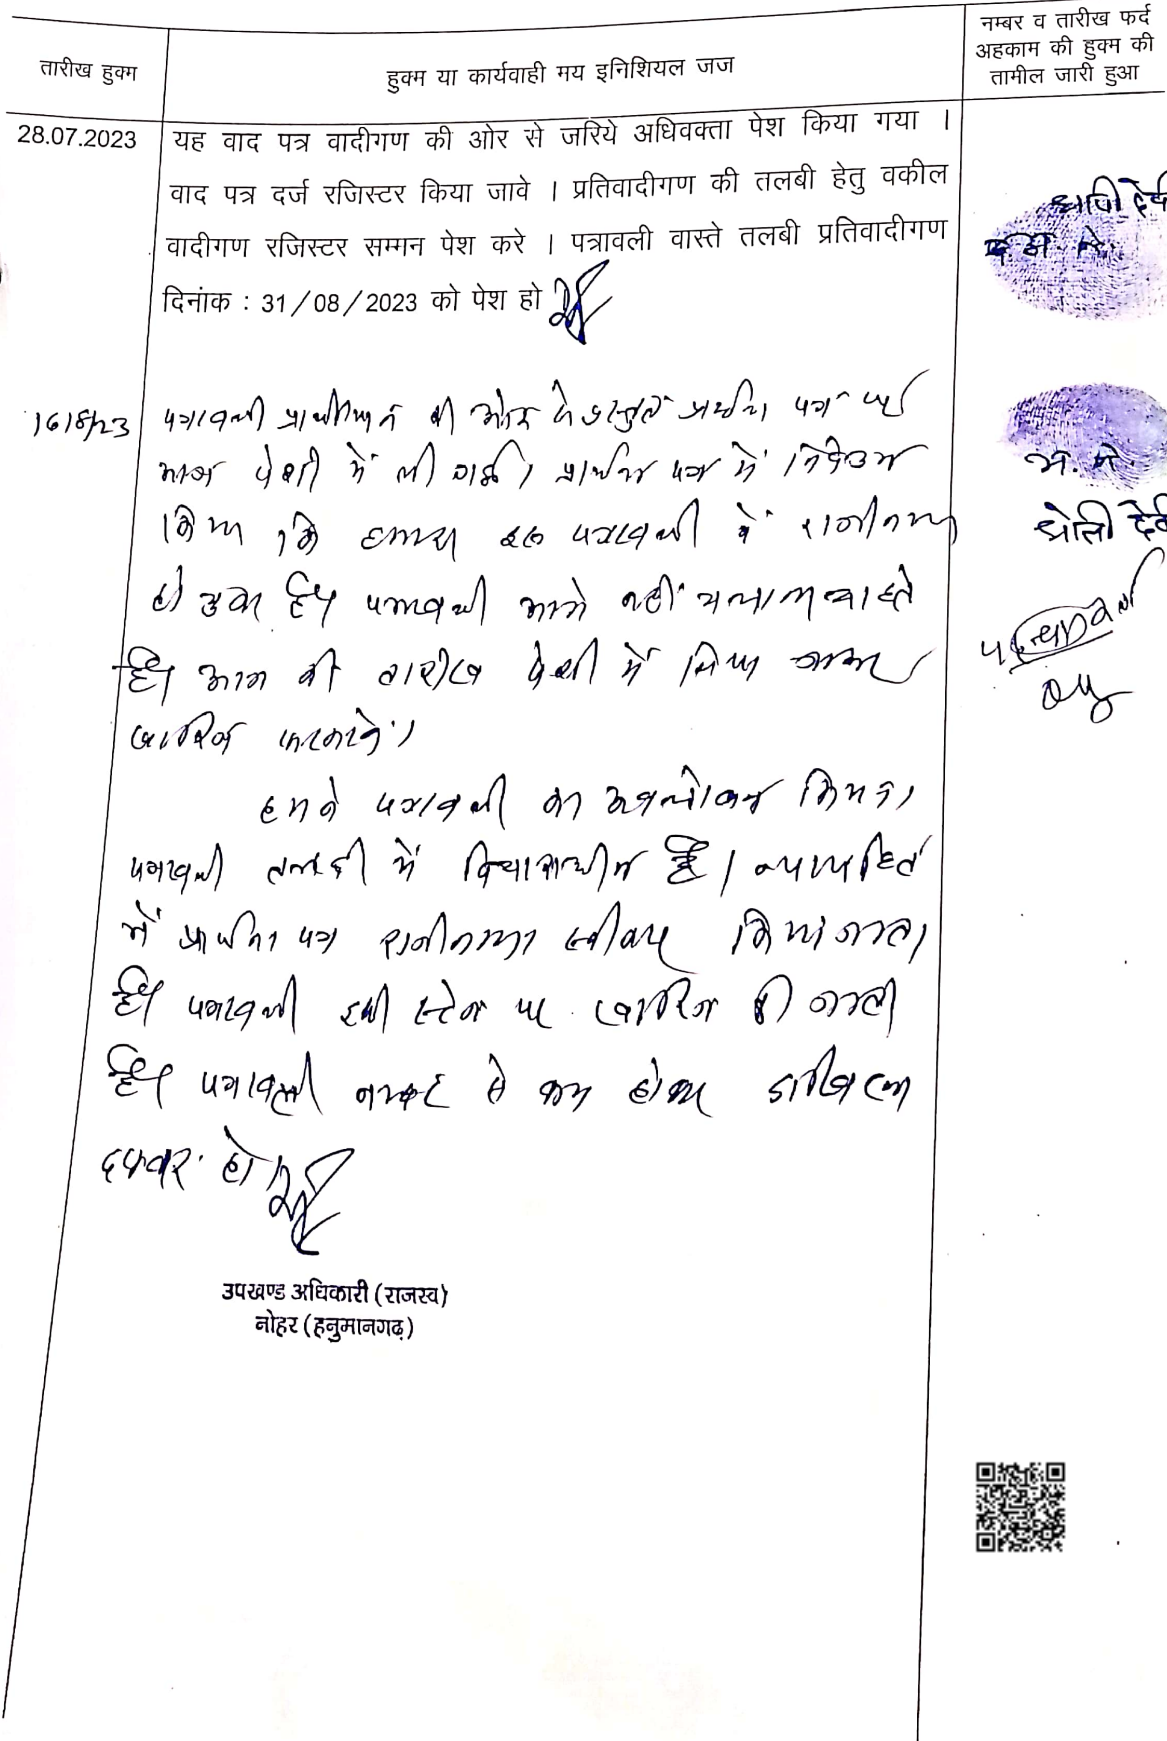 तारीख हुक्म
हुक्म या कार्यवाही मय इनिशियल जज
नम्बर व तारीख फर्द
अहकाम की हुक्म की
तामील जारी हुआ
28.07.2023
यह वाद पत्र वादीगण की ओर से जरिये अधिवक्ता पेश किया गया ।
वाद पत्र दर्ज रजिस्टर किया जावे । प्रतिवादीगण की तलबी हेतु वकील
वादीगण रजिस्टर सम्मन पेश करे । पत्रावली वास्ते तलबी प्रतिवादीगण
दिनांक : 31/08/2023 को पेश हो
16/8/23
पत्रावली प्रार्थीगण की ओर से प्रस्तुत प्रार्थना पत्र पर
आज पेशी में ली गई। प्रार्थना पत्र में निवेदन
किया कि हमारा इस पत्रावली में राजीनामा
हो चुका है। पत्रावली आगे नहीं चलाना चाहते
है। आज की तारीख पेशी में लिया जाकर
खारिज फरमावें।
हमने पत्रावली का अवलोकन किया।
पत्रावली तलबी में विचाराधीन है। न्यायहित
में प्रार्थना पत्र राजीनामा स्वीकार किया जाता
है। पत्रावली इसी स्टेज पर खारिज की जाती
है। पत्रावली नम्बर से कम होकर दाखिल
दफ्तर हो।
उपखण्ड अधिकारी (राजस्व)
नोहर (हनुमानगढ़)
अ. नि.
धोली देवी